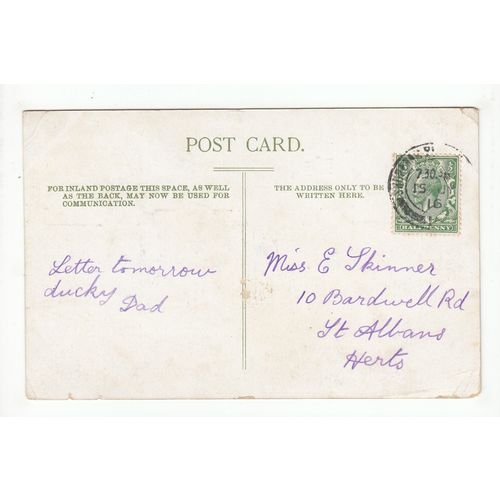 POST CARD.
FOR INLAND POSTAGE THIS SPACE, AS WELL
AS THE BACK, MAY NOW BE USED FOR
COMMUNICATION.
THE ADDRESS ONLY TO BE
WRITTEN HERE.
7 30
15
16
HALFPENNY
Letter tomorrow
ducky
Dad
Miss E Skinner
10 Bardwell Rd
St Albans
Herts